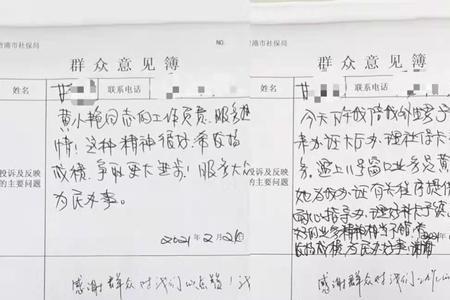 港市社保局
群众意见簿
姓名
甘
联系电话
黄小艳同志的工作负责，服务热
情！这种精神很好，希发扬
成绩，争取更大进步！服务大众
为民办事。
投诉及反映
的主要问题
2021年2月2日
感谢群众对我们的点赞！我
港市社保局
NO.
群众意见簿
姓名
甘
联系电话
今天下午我陪我外婆
来办证大厅办理社保卡
务，遇上11号窗口业务员黄
她为我办证有关程序提供
耐心指导办理好补卡手续，
好的业务精神
发扬成绩为民办好事，谢谢
投诉及反映
的主要问题
感谢群众对我们工作